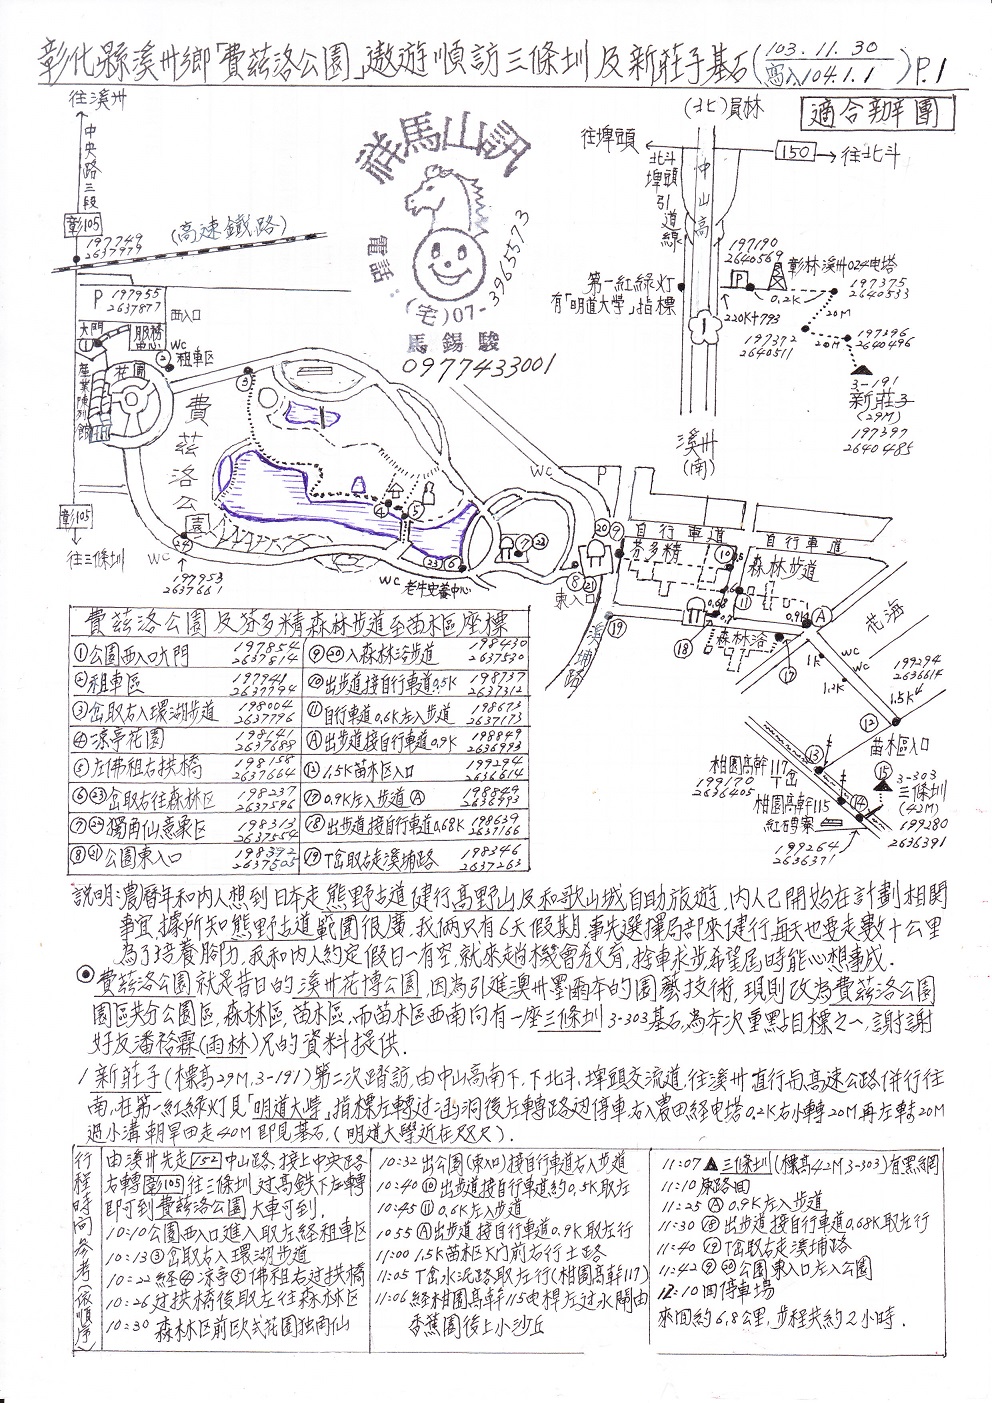 彰化縣溪州鄉「費茲洛公園」遨遊順訪三條圳及新莊子基石(103.11.30 寫入104.1.1)P.1
適合辦團
往溪州
中央路三段
彰105
197749
2637979
(高速鐵路)
P 197955
2637877
西入口
大門
服務中心
①
WC
② 租車区
產業陳列館
花園
彰105
往三條圳
WC
197953
2637661
祥馬山訊
電話:(宅)07-3965573
馬錫駿
0977433001
費茲洛公園
③
④
⑤
㉔
㉓⑥
⑦㉒
WC 老牛安養中心
⑧㉑
東入口
溪埔路
⑲
WC
P
⑳⑨
自行車道
自行車道
芬多精
森林步道
⑩
0.5
⑪
0.6
0.68
0.7
⑱
森林浴
0.9K
A
⑰
花海
1K
WC
WC
1.2K
199294
2636614
1.5K
⑫
苗木區入口
⑬
柏園高幹117
T岔
199170
2636405
柏園高幹115
紅磚寮
⑭
199264
2636371
⑮
3-303
三條圳
(42M)
199280
2636391
(北)員林
往埤頭
150 往北斗
北斗埤頭引道線
中山高
第一紅綠灯
有「明道大學」指標
1
220K+793
溪州
(南)
197190
2640569
P
彰林溪州024电塔
0.2K
197375
2640533
20M
197372
2640511
20M
197396
2640496
3-191
新莊子
(29M)
197397
2640485
費茲洛公園及芬多精森林步道至苗木區座標
①公園西入口大門 197854 2637814
⑨⑳入森林浴步道 198430 2637530
②租車區 197941 2637794
⑩出步道接自行車道0.5K 198737 2637312
③岔取右入環湖步道 198004 2637796
⑪自行車道0.6K左入步道 198673 2637173
④涼亭花園 198141 2637688
Ⓐ出步道接自行車道0.9K 198849 2636993
⑤左佛祖右拱橋 198158 2637664
⑫1.5K苗木區入口 199294 2636614
⑥㉓岔取右往森林区 198237 2637596
⑰0.9K左入步道Ⓐ 198849 2636993
⑦㉒獨角仙意象区 198313 2637554
⑱出步道接自行車道0.68K 198639 2637166
⑧㉑公園東入口 198392 2637505
⑲T岔取右走溪埔路 198346 2637263
說明:農曆年和內人想到日本走熊野古道健行,高野山及和歌山城自助旅遊,內人已開始在計劃相關
事宜,據所知熊野古道範圍很廣,我倆只有6天假期,事先選擇局部來健行,每天也要走數十公里
為了培養腳力,我和內人約定假日一有空,就來走尚機會教育,捨車求步希望屆時能心想事成.
⊙費茲洛公園就是昔日的溪州花博公園,因為引進澳州墨爾本的園藝技術,現則改為費茲洛公園
園區共分公園區,森林區,苗木區,而苗木區西南向有一座三條圳3-303基石,為本次重點目標之一,謝謝
好友潘裕霖(雨林)兄的資料提供.
1新莊子(標高29M,3-191)第二次踏訪,由中山高南下,下北斗,埤頭交流道,往溪州直行与高速公路併行往
南,在第一紅綠灯見「明道大學」指標左轉过涵洞後左轉路边停車右入農田経电塔0.2K右小轉20M再左轉20M
過小溝朝旱田走40M即見基石.(明道大學近在咫尺).
行程時间參考(依順序)
由溪州先走152中山路接上中央路
右轉彰105往三條圳过高鉄下左轉
即可到費茲洛公園大車可到.
10:10公園西入口進入取左経租車区
10:13③岔取右入環湖步道
10:22経④涼亭⑤佛祖右过拱橋
10:26过拱橋後取左往森林区
10:30 森林区前欧式花園独角仙
10:32出公園(東入口)接自行車道右入步道
10:40⑩出步道接自行車道約0.5K取左
10:45⑪0.6K左入步道
1055Ⓐ出步道接自行車道0.9K取左行
11:00 1.5K苗木区入門前右行土路
11:05 T岔水泥路取左行(柏園高幹117)
11:06経柏園高幹115电桿左过水閘由
香蕉園後上小沙丘
11:07▲三條圳(標高42M3-303)有黑網
11:10原路回
11:25Ⓐ0.9K左入步道
11:30⑱出步道接自行車道0.68K取左行
11:40⑲T岔取右走溪埔路
11:42⑨⑳公園東入口左入公園
12:10回停車場
來回約6,8公里,步程共約2小時.